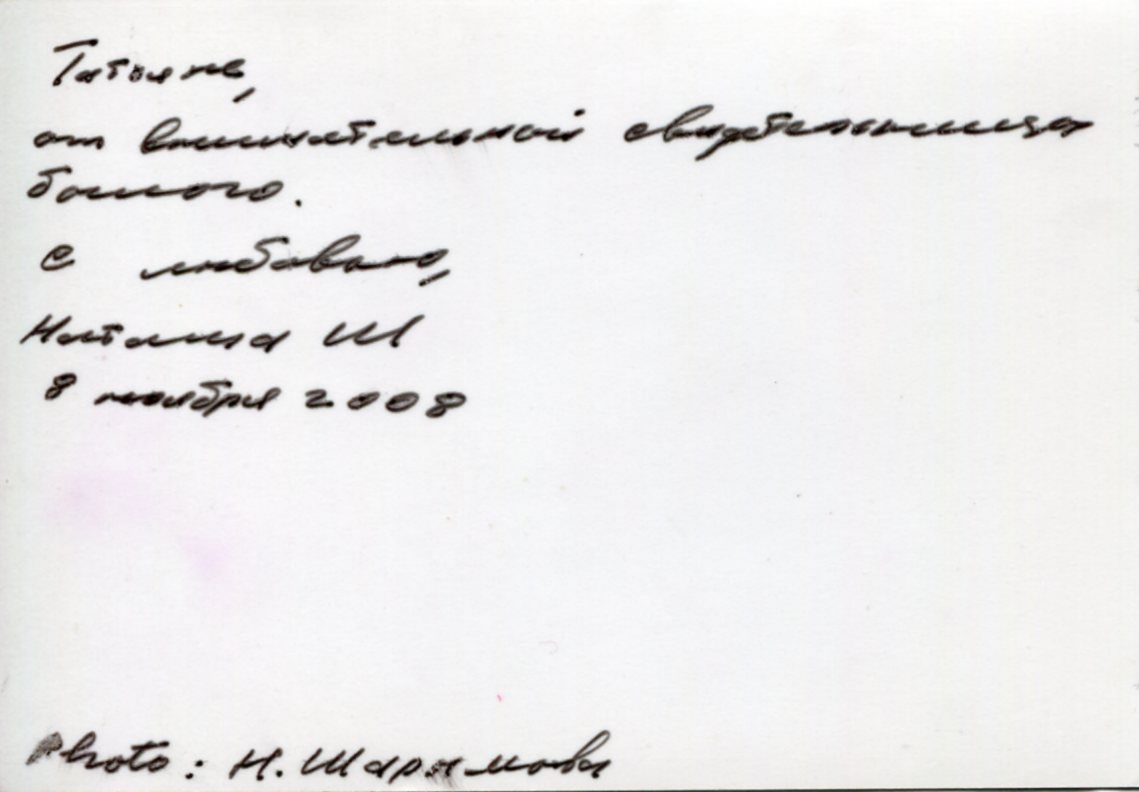 Татьяне,
от внимательной свидетельницы
былого.
С любовью,
Наташа Ш
8 ноября 2008
Photo: Н. Шарымова